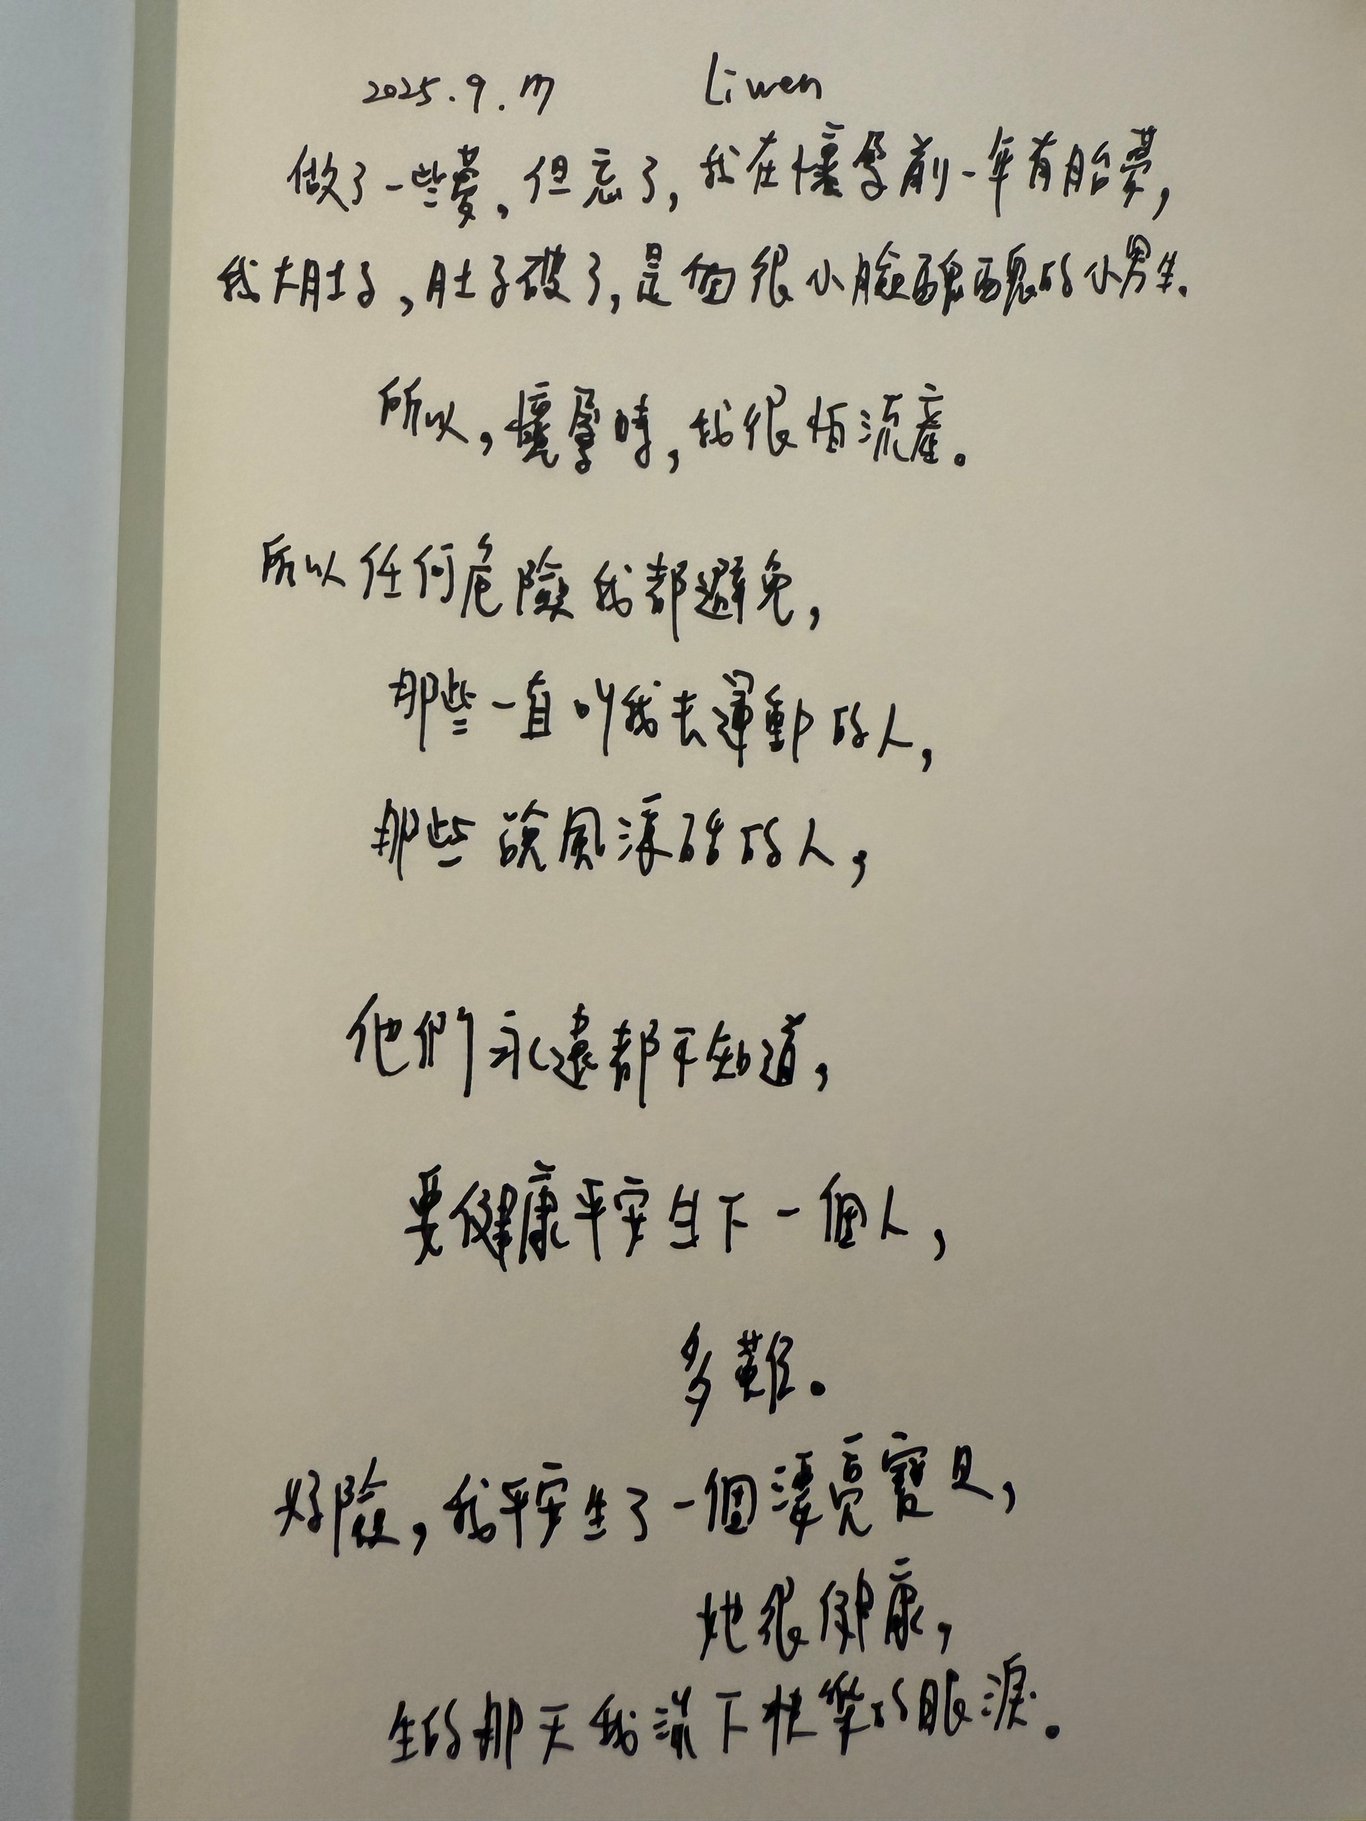 2025.9.m Liwen
做了一些夢，但忘了，我在懷孕前一年有胎夢，
我大肚子，肚子破了，是個很小臉醜醜的小男生。
所以，懷孕時，我很怕流產。
所以任何危險我都避免，
那些一直叫我去運動的人，
那些說風涼話的人，
他們永遠都不知道，
要健康平安生下一個人，
多難。
好險，我平安生了一個漂亮寶貝，
她很健康，
生的那天我流下快樂的眼淚。